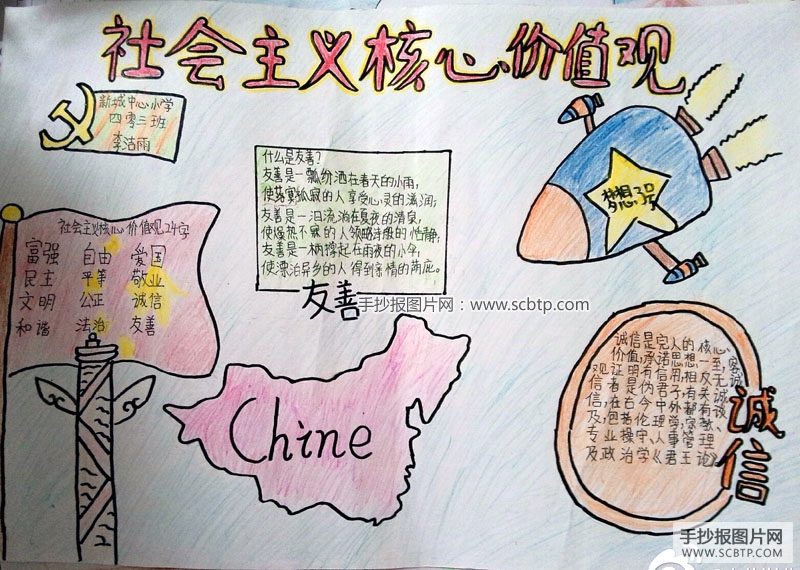 社会主义核心价值观
新城中心小学
四零三班
李洁雨
什么是友善?
友善是一瓢纷洒在春天的小雨,
使落寞孤寂的人享受心灵的滋润;
友善是一汩流淌在夏夜的清泉,
使燥热不寐的人领略诗般的恬静;
友善是一柄撑起在雨夜的小伞,
使漂泊异乡的人得到亲情的荫庇。
友善
手抄报图片网:www.scbtp.com
梦想号
社会主义核心价值观24字
富强 自由 爱国
民主 平等 敬业
文明 公正 诚信
和谐 法治 友善
Chine
诚信是完人的核心
价值,承诺思想一至,客
观证明有信用,相反,无诚
信者是伪君子,有关诚
信,在古今中外都有谈
及,包括伦理学,宗教、
专业操守、人事管理
及政治学《君王论》
诚信
手抄报图片网
WWW.SCBTP.COM